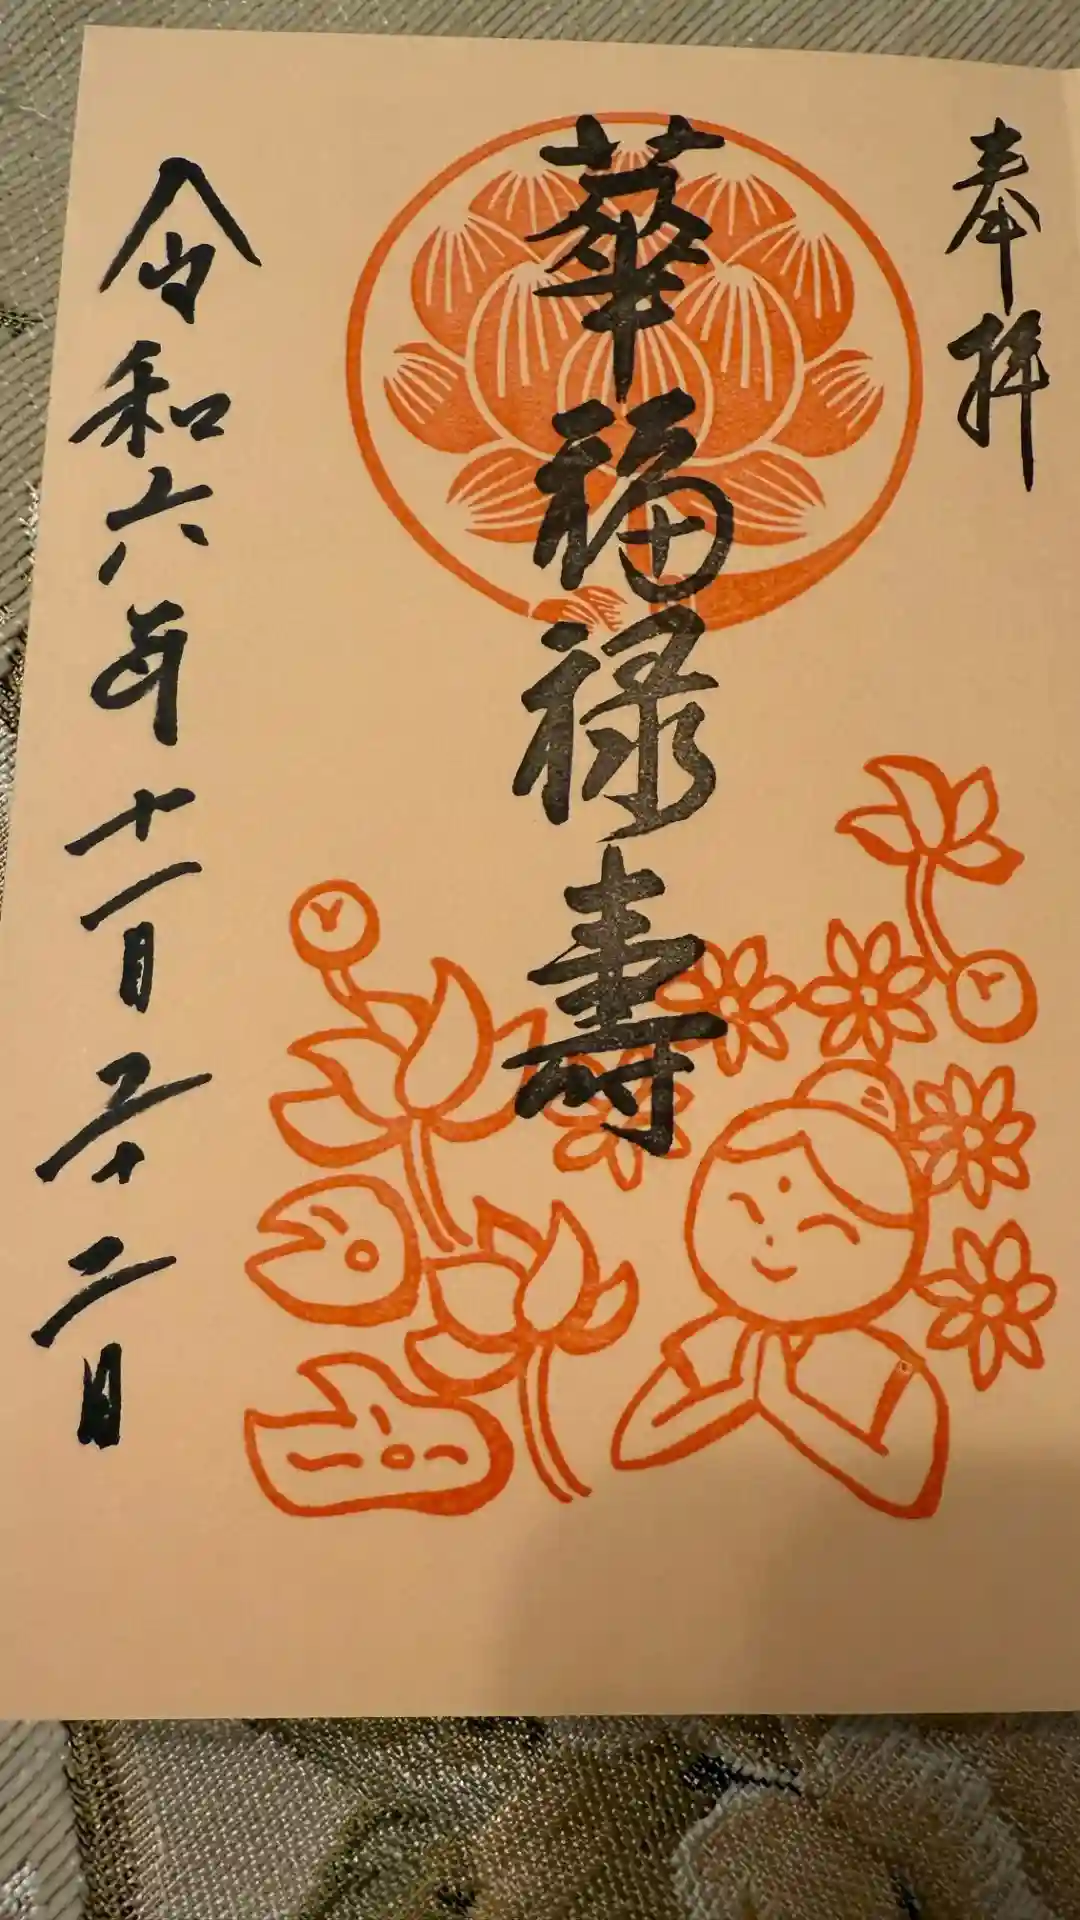 奉拝
華福禄寿
令和六年十一月二十二日